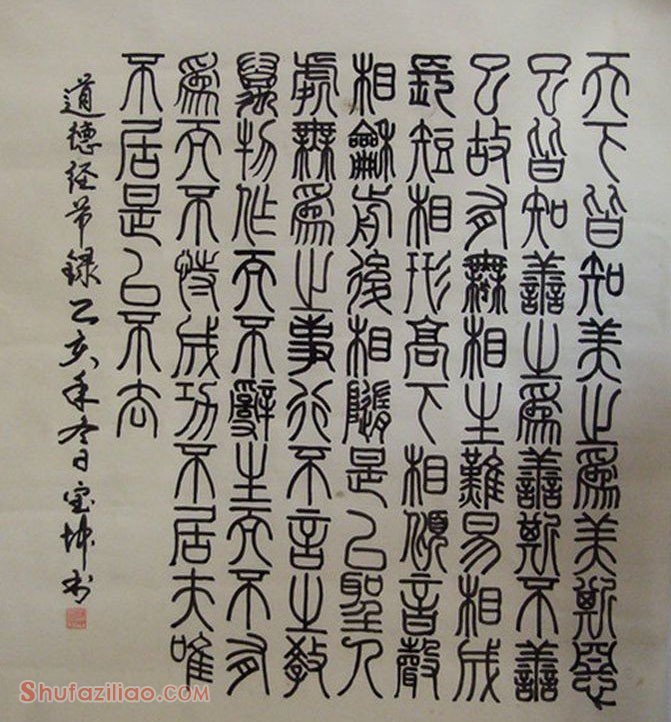 天下皆知美之為美斯惡
已皆知善之為善斯不善
已故有無相生難易相成
長短相形高下相傾音聲
相龢前後相隨是以聖人
處無為之事行不言之教
萬物作而不辭生而不有
為而不恃成功不居夫唯
不居是以不去
道德经节録乙亥年冬日宝坤书
SHUFAZILIAO.COM